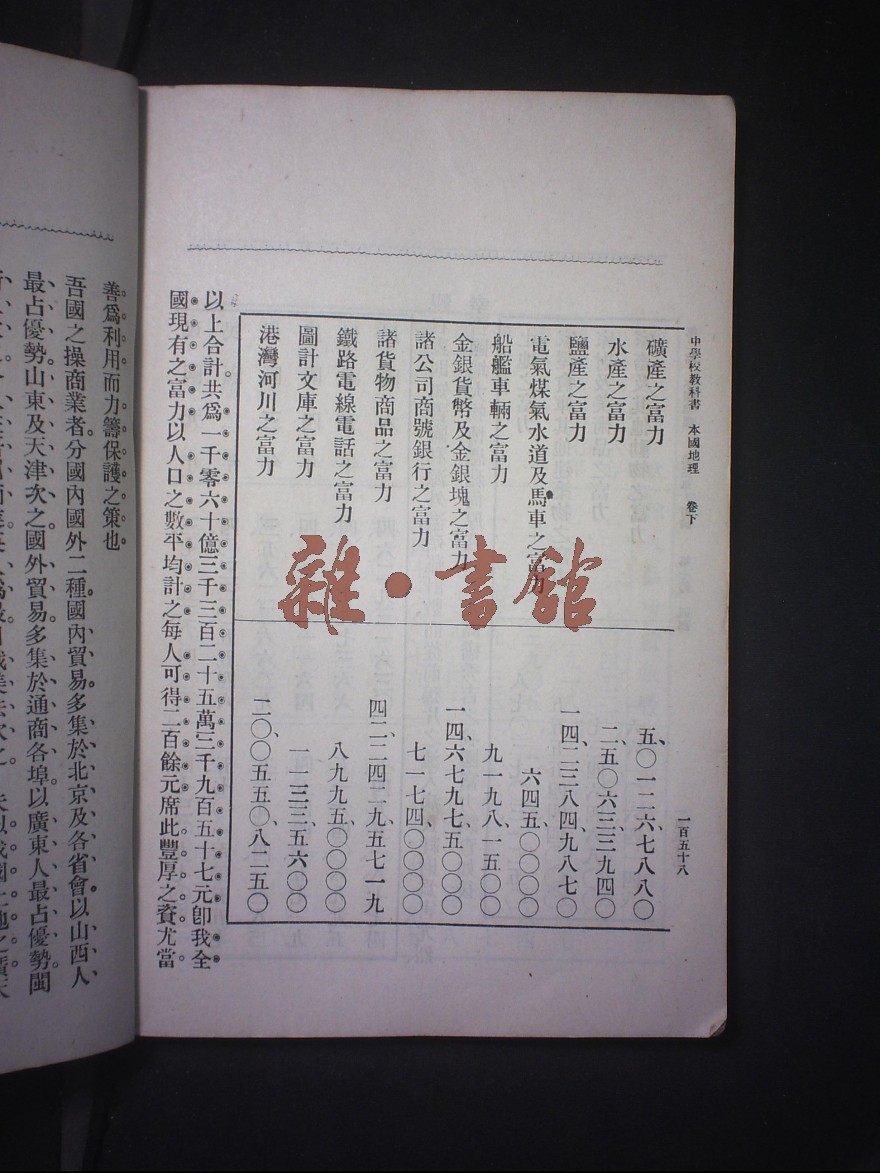 中學校教科書 本國地理 卷下 一百五十八
礦產之富力 五〇一二六七八八〇
水產之富力 二、五〇六三三九四〇
鹽產之富力 一四二三八四九八七〇
電氣煤氣水道及馬車之富力 六四五〇〇〇〇
船艦車輛之富力 九一九八一五〇〇
金銀貨幣及金銀塊之富力 一四六七九七五〇〇〇
諸公司商號銀行之富力 七一七四〇〇〇〇
諸貨物商品之富力 四二二四二九五七一九
鐵路電線電話之富力 八九九五〇〇〇〇
圖計文庫之富力 一一三三五六〇〇
港灣河川之富力 二〇〇五五〇八二五〇
以上合計共爲一千零六十億三千三百二十五萬三千九百五十七元卽我全
國現有之富力以人口之數平均計之每人可得二百餘元席此豐厚之資尤當
善爲利用而力籌保護之策也
吾國之操商業者分國內國外二種國內貿易多集於北京及各省會以山西人
最占優勢山東及天津次之國外貿易多集於通商各埠以廣東人最占優勢閩
雜·書館